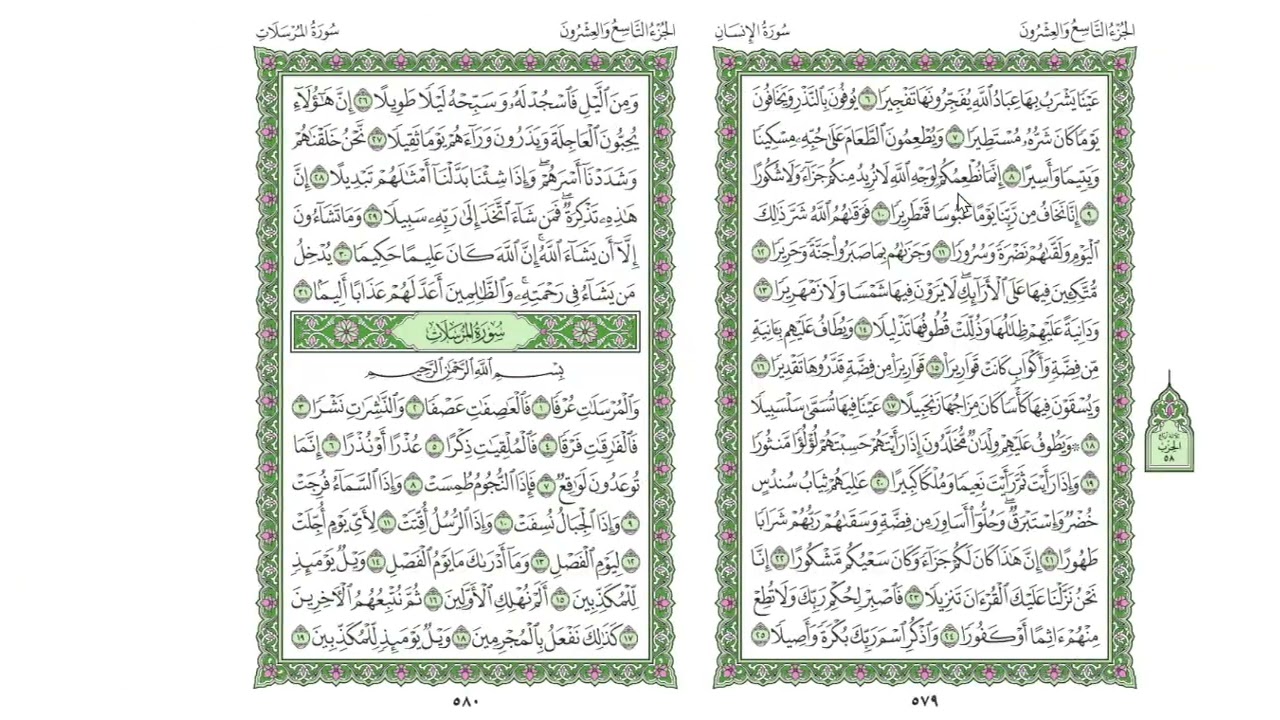 الجُزْءُ التَّاسِعُ وَالعِشْرُونَ
سُورَةُ الإِنسَانِ
عَيْنًا يَشْرَبُ بِهَا عِبَادُ ٱللَّهِ يُفَجِّرُونَهَا تَفْجِيرًا ٦ يُوفُونَ بِٱلنَّذْرِ وَيَخَافُونَ
يَوْمًا كَانَ شَرُّهُۥ مُسْتَطِيرًا ٧ وَيُطْعِمُونَ ٱلطَّعَامَ عَلَىٰ حُبِّهِۦ مِسْكِينًا
وَيَتِيمًا وَأَسِيرًا ٨ إِنَّمَا نُطْعِمُكُمْ لِوَجْهِ ٱللَّهِ لَا نُرِيدُ مِنكُمْ جَزَآءً وَلَا شُكُورًا
٩ إِنَّا نَخَافُ مِن رَّبِّنَا يَوْمًا عَبُوسًا قَمْطَرِيرًا ١٠ فَوَقَىٰهُمُ ٱللَّهُ شَرَّ ذَٰلِكَ
ٱلْيَوْمِ وَلَقَّىٰهُمْ نَضْرَةً وَسُرُورًا ١١ وَجَزَىٰهُم بِمَا صَبَرُوا۟ جَنَّةً وَحَرِيرًا ١٢
مُّتَّكِـِٔينَ فِيهَا عَلَى ٱلْأَرَآئِكِ ۖ لَا يَرَوْنَ فِيهَا شَمْسًا وَلَا زَمْهَرِيرًا ١٣
وَدَانِيَةً عَلَيْهِمْ ظِلَٰلُهَا وَذُلِّلَتْ قُطُوفُهَا تَذْلِيلًا ١٤ وَيُطَافُ عَلَيْهِم بِـَٔانِيَةٍ
مِّن فِضَّةٍ وَأَكْوَابٍ كَانَتْ قَوَارِيرَا۠ ١٥ قَوَارِيرَا۟ مِن فِضَّةٍ قَدَّرُوهَا تَقْدِيرًا ١٦
وَيُسْقَوْنَ فِيهَا كَأْسًا كَانَ مِزَاجُهَا زَنجَبِيلًا ١٧ عَيْنًا فِيهَا تُسَمَّىٰ سَلْسَبِيلًا
١٨ ۞ وَيَطُوفُ عَلَيْهِمْ وِلْدَٰنٌ مُّخَلَّدُونَ إِذَا رَأَيْتَهُمْ حَسِبْتَهُمْ لُؤْلُؤًا مَّنثُورًا
١٩ وَإِذَا رَأَيْتَ ثَمَّ رَأَيْتَ نَعِيمًا وَمُلْكًا كَبِيرًا ٢٠ عَٰلِيَهُمْ ثِيَابُ سُندُسٍ
خُضْرٌ وَإِسْتَبْرَقٌ ۖ وَحُلُّوٓا۟ أَسَاوِرَ مِن فِضَّةٍ وَسَقَىٰهُمْ رَبُّهُمْ شَرَابًا
طَهُورًا ٢١ إِنَّ هَٰذَا كَانَ لَكُمْ جَزَآءً وَكَانَ سَعْيُكُم مَّشْكُورًا ٢٢ إِنَّا
نَحْنُ نَزَّلْنَا عَلَيْكَ ٱلْقُرْءَانَ تَنزِيلًا ٢٣ فَٱصْبِرْ لِحُكْمِ رَبِّكَ وَلَا تُطِعْ
مِنْهُمْ ءَاثِمًا أَوْ كَفُورًا ٢٤ وَٱذْكُرِ ٱسْمَ رَبِّكَ بُكْرَةً وَأَصِيلًا ٢٥
٥٧٩
الحِزْبُ
٥٨
الجُزْءُ التَّاسِعُ وَالعِشْرُونَ
سُورَةُ المُرْسَلَاتِ
وَمِنَ ٱلَّيْلِ فَٱسْجُدْ لَهُۥ وَسَبِّحْهُ لَيْلًا طَوِيلًا ٢٦ إِنَّ هَٰٓؤُلَآءِ
يُحِبُّونَ ٱلْعَاجِلَةَ وَيَذَرُونَ وَرَآءَهُمْ يَوْمًا ثَقِيلًا ٢٧ نَّحْنُ خَلَقْنَٰهُمْ
وَشَدَدْنَآ أَسْرَهُمْ ۖ وَإِذَا شِئْنَا بَدَّلْنَآ أَمْثَٰلَهُمْ تَبْدِيلًا ٢٨ إِنَّ
هَٰذِهِۦ تَذْكِرَةٌ ۖ فَمَن شَآءَ ٱتَّخَذَ إِلَىٰ رَبِّهِۦ سَبِيلًا ٢٩ وَمَا تَشَآءُونَ
إِلَّآ أَن يَشَآءَ ٱللَّهُ ۚ إِنَّ ٱللَّهَ كَانَ عَلِيمًا حَكِيمًا ٣٠ يُدْخِلُ
مَن يَشَآءُ فِى رَحْمَتِهِۦ ۚ وَٱلظَّٰلِمِينَ أَعَدَّ لَهُمْ عَذَابًا أَلِيمًۢا ٣١
سُورَةُ المُرْسَلَاتِ
بِسْمِ ٱللَّهِ ٱلرَّحْمَٰنِ ٱلرَّحِيمِ
وَٱلْمُرْسَلَٰتِ عُرْفًا ١ فَٱلْعَٰصِفَٰتِ عَصْفًا ٢ وَٱلنَّٰشِرَٰتِ نَشْرًا ٣
فَٱلْفَٰرِقَٰتِ فَرْقًا ٤ فَٱلْمُلْقِيَٰتِ ذِكْرًا ٥ عُذْرًا أَوْ نُذْرًا ٦ إِنَّمَا
تُوعَدُونَ لَوَٰقِعٌ ٧ فَإِذَا ٱلنُّجُومُ طُمِسَتْ ٨ وَإِذَا ٱلسَّمَآءُ فُرِجَتْ
٩ وَإِذَا ٱلْجِبَالُ نُسِفَتْ ١٠ وَإِذَا ٱلرُّسُلُ أُقِّتَتْ ١١ لِأَىِّ يَوْمٍ أُجِّلَتْ
١٢ لِيَوْمِ ٱلْفَصْلِ ١٣ وَمَآ أَدْرَىٰكَ مَا يَوْمُ ٱلْفَصْلِ ١٤ وَيْلٌ يَوْمَئِذٍ
لِّلْمُكَذِّبِينَ ١٥ أَلَمْ نُهْلِكِ ٱلْأَوَّلِينَ ١٦ ثُمَّ نُتْبِعُهُمُ ٱلْـَٔاخِرِينَ
١٧ كَذَٰلِكَ نَفْعَلُ بِٱلْمُجْرِمِينَ ١٨ وَيْلٌ يَوْمَئِذٍ لِّلْمُكَذِّبِينَ ١٩
٥٨٠